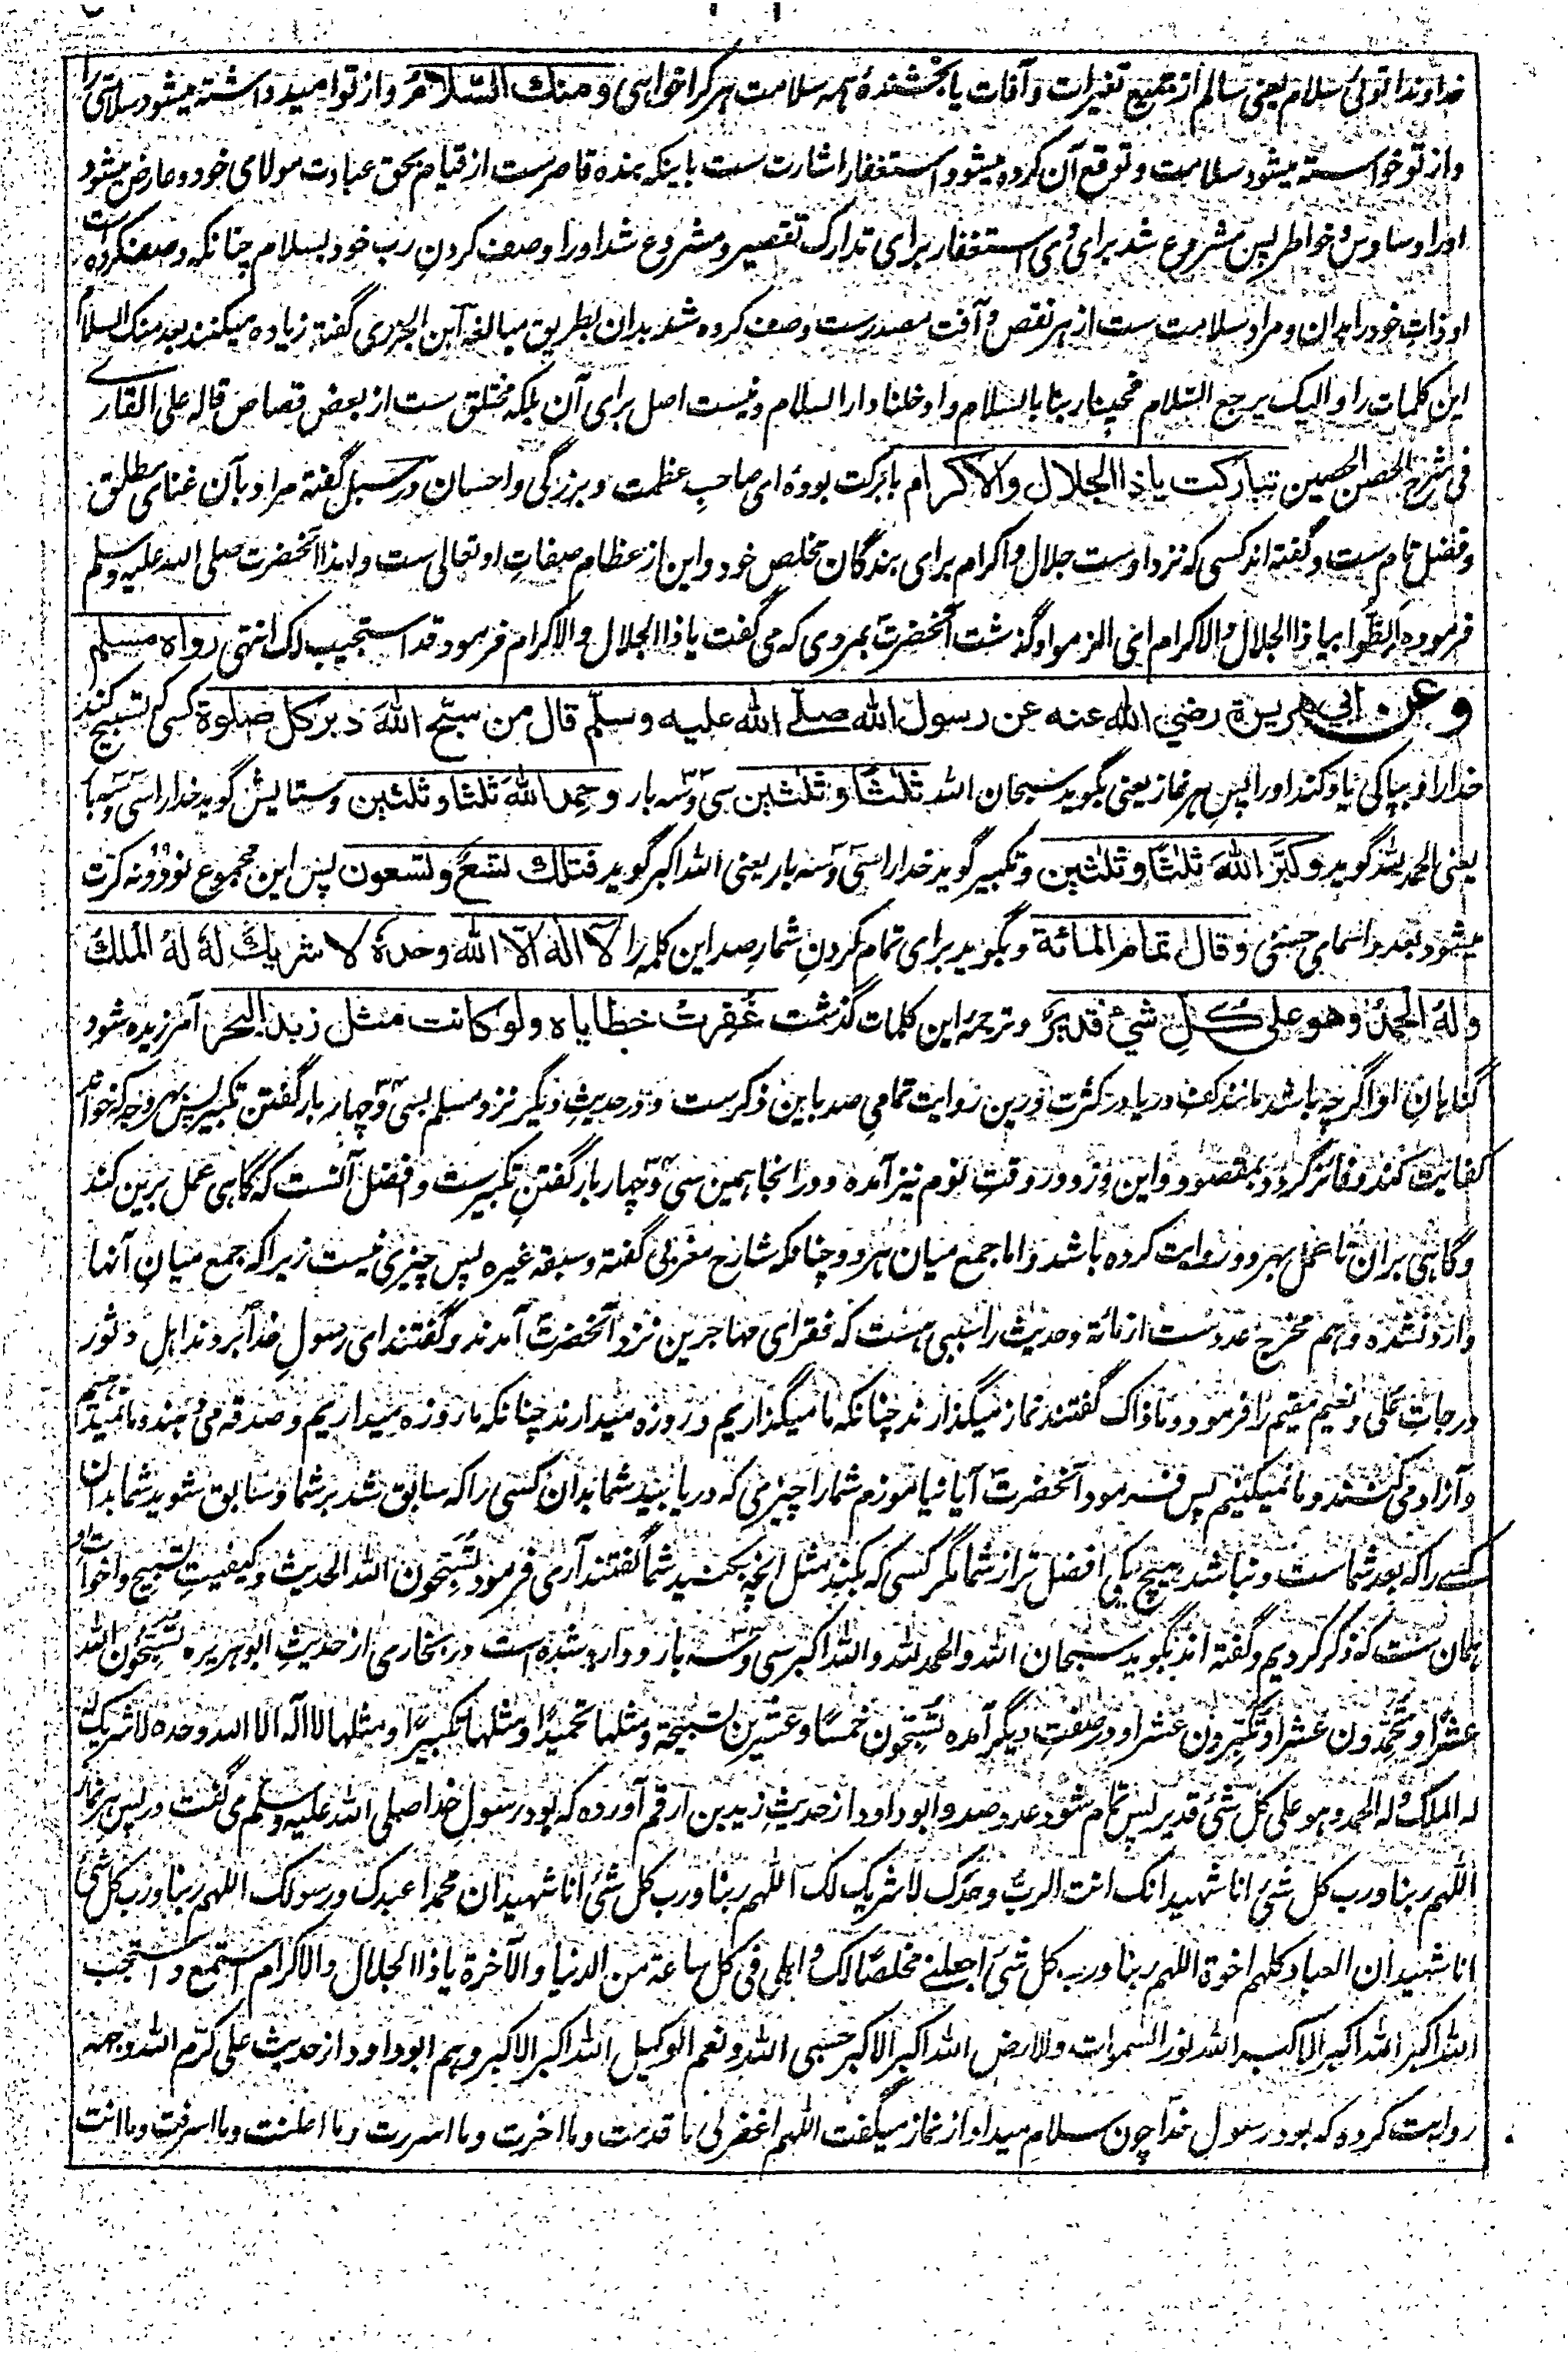 خداوندا توئی سلام یعنی سالم از جمیع تغیرات و آفات یا بخشندهٔ همه سلامت هر کرا خواهی ومنك السّلام و از تو امید داشته میشود سلامتی را
و از تو خواسته میشود سلامت و توقع آن کرده میشود استغفار اشارت ست باینکه بنده قاصرست از قیام بحق عبادت مولای خود و عارض میشود
او را وساوس و خواطر پس مشروع شد برای وی استغفار برای تدارک تقصیر و مشروع شد او را وصف کردنِ رب خود بسلام چنانکه وصف کرده است
او ذاتِ خود را بدان و مراد سلامت ست از هر نقص و آفت مصدرست وصف کرده شد بدان بطریق مبالغه ابن الجزری گفته زیاده میکنند بعد منک السلام
این کلمات را و الیک یرجع السّلام فحینا ربنا بالسلام و ادخلنا دارالسلام و نیست اصل برای آن بلکه مختلق ست از بعض قصاص قاله علی القاری
فی شرح الحصن الحصین تبارکت یا ذا الجلال والاکرام بابرکت بودهٔ ای صاحبِ عظمت و بزرگی و احسان در سبل گفته مراد بآن غنای مطلق
و فضل تام ست و گفته اند کسی که نزد اوست جلال و اکرام برای بندگان مخلص خود و این از عظام صفاتِ او تعالی ست و لهذا آنحضرت صلی الله علیه وسلم
فرموده اَلِظّوا بیا ذا الجلال والاکرام ای الزموا و گذشت آنحضرت بمردی که می گفت یا ذا الجلال والاکرام فرمود قد استجیب لک انتهی رواه مسلم
وعن ابی هریرة رضي الله عنه عن رسول الله صلے الله علیه وسلم قال من سبّح اللهَ دبر کل صلوة کسی که تسبیح کند
خدا را و بپاکی یاد کند او را پسِ هر نماز یعنی بگوید سبحان الله ثلٰثًا وثلٰثین سی و سه بار وحمد اللهَ ثلثا وثلثین و ستایش گوید خدا را سی و سه بار
یعنی الحمد لله گوید وکبّر اللهَ ثلٰثًا وثلٰثین و تکبیر گوید خدا را سی و سه بار یعنی الله اکبر گوید فتلك تسعٌ وتسعون پس این مجموع نود و نه کرت
میشود بعدد اسمای حسنی وقال تمام المائة و بگوید برای تمام کردنِ شمارِ صد این کلمه را لا اله الّا الله وحدهٗ لا شریك لهٗ لهُ الملك
ولهُ الحمدُ وهو علی کلِ شیءٍ قدیرٌ و ترجمهٔ این کلمات گذشت غُفِرت خطایاه ولو کانت مثل زبد البحر آمرزیده شود
گناهانِ او اگرچه باشد مانند کف دریا در کثرت و درین روایت تمامیِ صد باین ذکرست و در حدیثِ دیگر نزد مسلم بسی و چهار بار گفتن تکبیر پس بهر وجه که خواهد
کفایت کند و فائز گردد بمقصود و این ورد در وقتِ نوم نیز آمده و در انجا همین سی و چهار بار گفتنِ تکبیرست و افضل آنست که گاهی عمل برین کند
و گاهی بران تا عمل بهر دو روایت کرده باشد و اما جمع میان هر دو چنانکه شارح مغربی گفته و سبقه غیره پس چیزی نیست زیرا که جمع میانِ آنها
وارد نشده و هم مخرج عددست از مائة و حدیث را سببی هست که فقرای مهاجرین نزد آنحضرت آمدند و گفتند ای رسولِ خدا بردند اهل دثور
درجات علی و نعیم مقیم را فرمود و ما ذاک گفتند نماز میگذارند چنانکه ما میگذاریم و روزه میدارند چنانکه ما روزه میداریم و صدقه می دهند و ما نمیدهیم
و آزاد می کنند و ما نمیکنیم پس فرمود آنحضرت آیا نیاموزم شما را چیزی که دریابید شما بدان کسی را که سابق شد بر شما و سابق شوید شما بدان
کسے را که بعد شماست و نباشد هیچ یکی افضل تر از شما مگر کسی که بکند مثل آنچه بکنید شما گفتند آری فرمود تسبّحون الله الحدیث و کیفیتِ تسبیح و اخوات او
همان ست که ذکر کردیم و گفته اند بگوید سبحان الله والحمد لله والله اکبر سی و سه بار و وارد شده است در بخاری از حدیثِ ابو هریره تسبّحون الله
عشرًا وتحمّدون عشرا وتکبّرون عشرا و در صفتِ دیگر آمده تسبّحون خمسًا وعشرین تسبیحة ومثلها تحمیدًا ومثلها تکبیرًا ومثلها لا اله الا الله وحده لا شریک له
له الملک وله الحمد وهو علی کل شئ قدیر پس تمام شود عدد صد و ابوداود از حدیثِ زید بن ارقم آورده که بود رسولِ خدا صلی الله علیه وسلم می گفت در پس هر نماز
اللهم ربنا ورب کل شئ انا شهید انک انت الربُّ وحدک لا شریک لک اللهم ربنا ورب کل شئ انا شهید ان محمدا عبدک ورسولک اللهم ربنا ورب کل شئ
انا شهید ان العباد کلهم اخوة اللهم ربنا ورب کل شئ اجعلنی مخلصًا لک واهلی فی کل ساعة من الدنیا والآخرة یا ذا الجلال والاکرام استمع واستجب
الله اکبر الله اکبر الاکبر الله نور السموات والارض الله اکبر الاکبر حسبی الله ونعم الوکیل الله اکبر الاکبر و هم ابوداود از حدیث علی کرّم الله وجهه
روایت کرده که بود رسول خدا چون سلام میداد از نماز میگفت اللهم اغفر لی ما قدمت وما اخرت وما اسررت وما اعلنت وما اسرفت وما انت